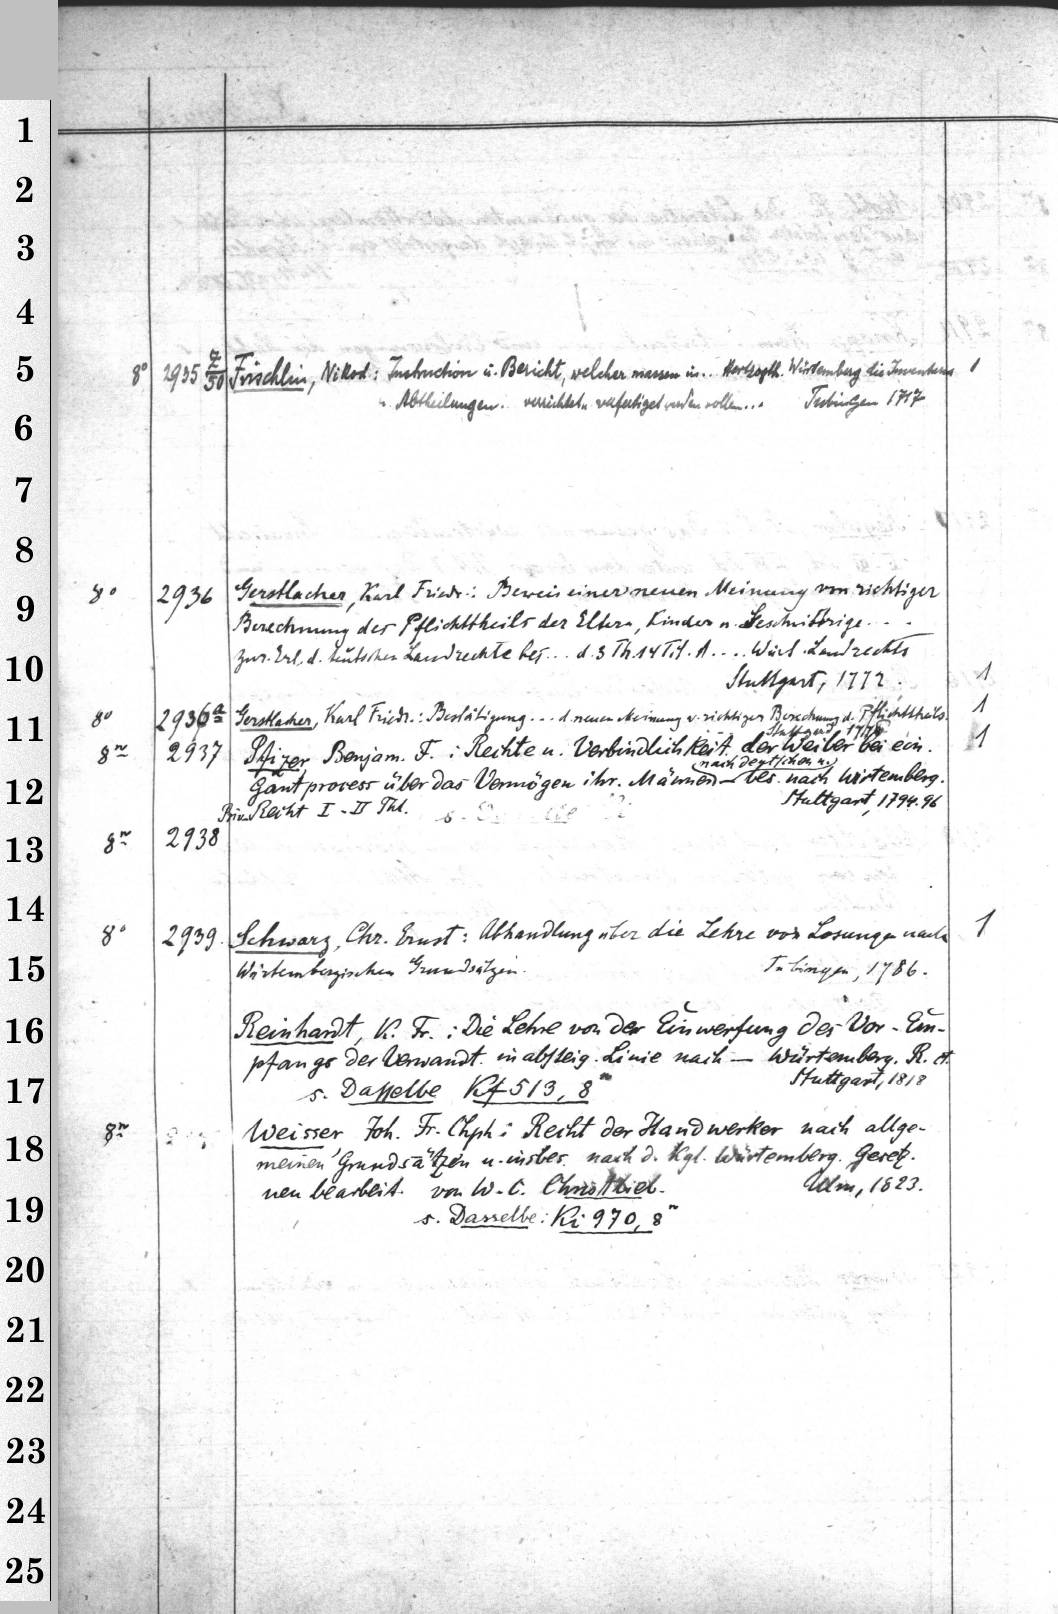 1
2
3
4
5
8° 2935 7/50 Frischlin, Nikod.: Instruction u. Bericht, welcher massen in.. Hertzogth. Würtemberg die Inventuren 1
u. Abtheilungen.. verrichtet u. verfertiget werden sollen... Tubingen 1717
6
7
8
9
8° 2936 Gerstlacher, Karl Friedr.: Beweis einer neuen Meinung von richtiger
Berechnung des Pflichttheils der Eltern, Kinder u. Geschwistrige....
zur Erl. d. teutschen Landrechte bes... d. 3 Th. 14 Tit. A.... Würt. Landrechts
10
Stuttgart, 1772. 1
11
8° 2936a Gerstlacher, Karl Friedr.: Bestätigung... d. neuen Meinung v. richtiger Berechnung d. Pflichttheils. 1
Stuttgart 1774
8° 2937 Pfizer Benjam. F.: Rechte u. Verbindlichkeit der Weiber bei ein. 1
(nach deutschen u.)
12
Gantprocess über das Vermögen ihr. Männer — bes. nach Wirtemberg.
Priv. Recht I-II Thl. Stuttgart, 1794.96
13
8° 2938
14
8° 2939. Schwarz, Chr. Ernst: Abhandlung über die Lehre von Losungen nach 1
15
Würtembergischen Grundsätzen. Tubingen, 1786.
16
Reinhardt, K. Fr.: Die Lehre von der Einwerfung des Vor-Em-
pfangs der Verwandt. in absteig. Linie nach — Würtemberg. R. ct.
17
Stuttgart, 1818
s. Dasselbe Kf 513, 8°
18
8° Weisser Joh. Fr. Chph: Recht der Handwerker nach allge-
meinen Grundsätzen u. insbes. nach d. Kgl. Würtemberg. Gesetz.
neu bearbeit. von W. C. Christlieb. Ulm, 1823.
19
s. Dasselbe: Ki 970, 8°
20
21
22
23
24
25